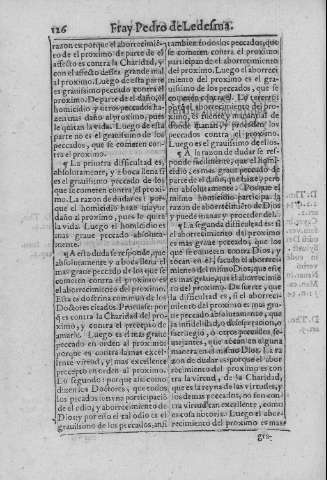 126 Fray Pedro de Ledesma.
razon es porque el aborrecimiẽ-
to de el proximo de parte de el
affecto es contra la Charidad, y
con el affecto dessea grande mal
al proximo. Luego es el mas gra
ue peccado que se comete contra el
proximo. De parte de el daño, el
homicidio y otros peccados ha-
zen mas daño al proximo, pues
le quitan la vida. Luego de esta
parte no es el grauissimo de los
peccados, que se cometen contra
el proximo.
¶ La primera difficultad es,
absolutamente, y a boca llena si
es el grauissimo peccado de los
que se cometen contra el proxi-
mo. La razon de dudar es: porque
el homicidio haze mayor
daño al proximo, pues le quita
la vida. Luego el homicidio es
mas graue peccado absoluta-
mente.
¶ A esta duda se responde, que
absolutamente y a boca llena el
mas graue peccado de los que se
cometen contra el proximo es
el aborrecimiento del proximo.
Esta es doctrina comun de los
Doctores citados. Prueuase: por
que es contra la Charidad del pro-
ximo, y contra el precepto de
amarle. Luego es el mas graue
peccado en orden al proximo,
porque es contra la mas excel-
lente virtud, y mas excellente
precepto en orden al proximo.
Lo segundo: porque assi como
dizen los Doctores, que todos
los pecados tienen participacion
de el odio, y aborrecimiento de
Dios, y por esso el tal odio es el
grauissimo de los peccados, ansi
tambien todos los peccados, que
se cometen contra el proximo
participan de el aborrecimiento
del proximo. Luego el aborreci-
miento del proximo es el gra-
uissimo de los peccados, que se
cometen contra el.
aborrecimiento del pro-
ximo, es fuente y manantial de
donde manan, y proceden los
peccados contra el proximo.
Luego es el grauissimo de ellos.
¶ A la razon de dudar se res-
ponde facilmente, que el homi-
cidio, es mas graue peccado de
parte de el daño, que haze, pero
no absolutamente. Porque el
mismo homicidio participa de
la razon de aborrecimiento de Dios
y puede manar y proceder del.
¶ La segunda difficultad es: si
el aborrecimiento del proximo
es mas graue peccado, que los
que se cometen contra Dios, y
tocan a el, sacado el aborreci-
miento del mismo Dios, que este
es mas graue que el aborrecimien-
to del proximo. De suerte, que
la difficultad es, si el aborreci-
miento del proximo es mas gra-
ue peccado absolutamente, que
la infidelidad, o desesperacion, o
sacrilegio, o otros peccados se-
mejantes, que tocan en alguna
manera en el mismo Dios. La ra-
zon de dudar es: porque el abor-
recimiento del proximo, es con-
tra la virtud, de la Charidad,
que es la reyna de las virtudes, y
los demas peccados, no son con-
tra virtud tan excellente, como
es cosa notoria. Luego el abor-
recimiento del proximo es mas
gra-
D. Tho.
D. Tho.